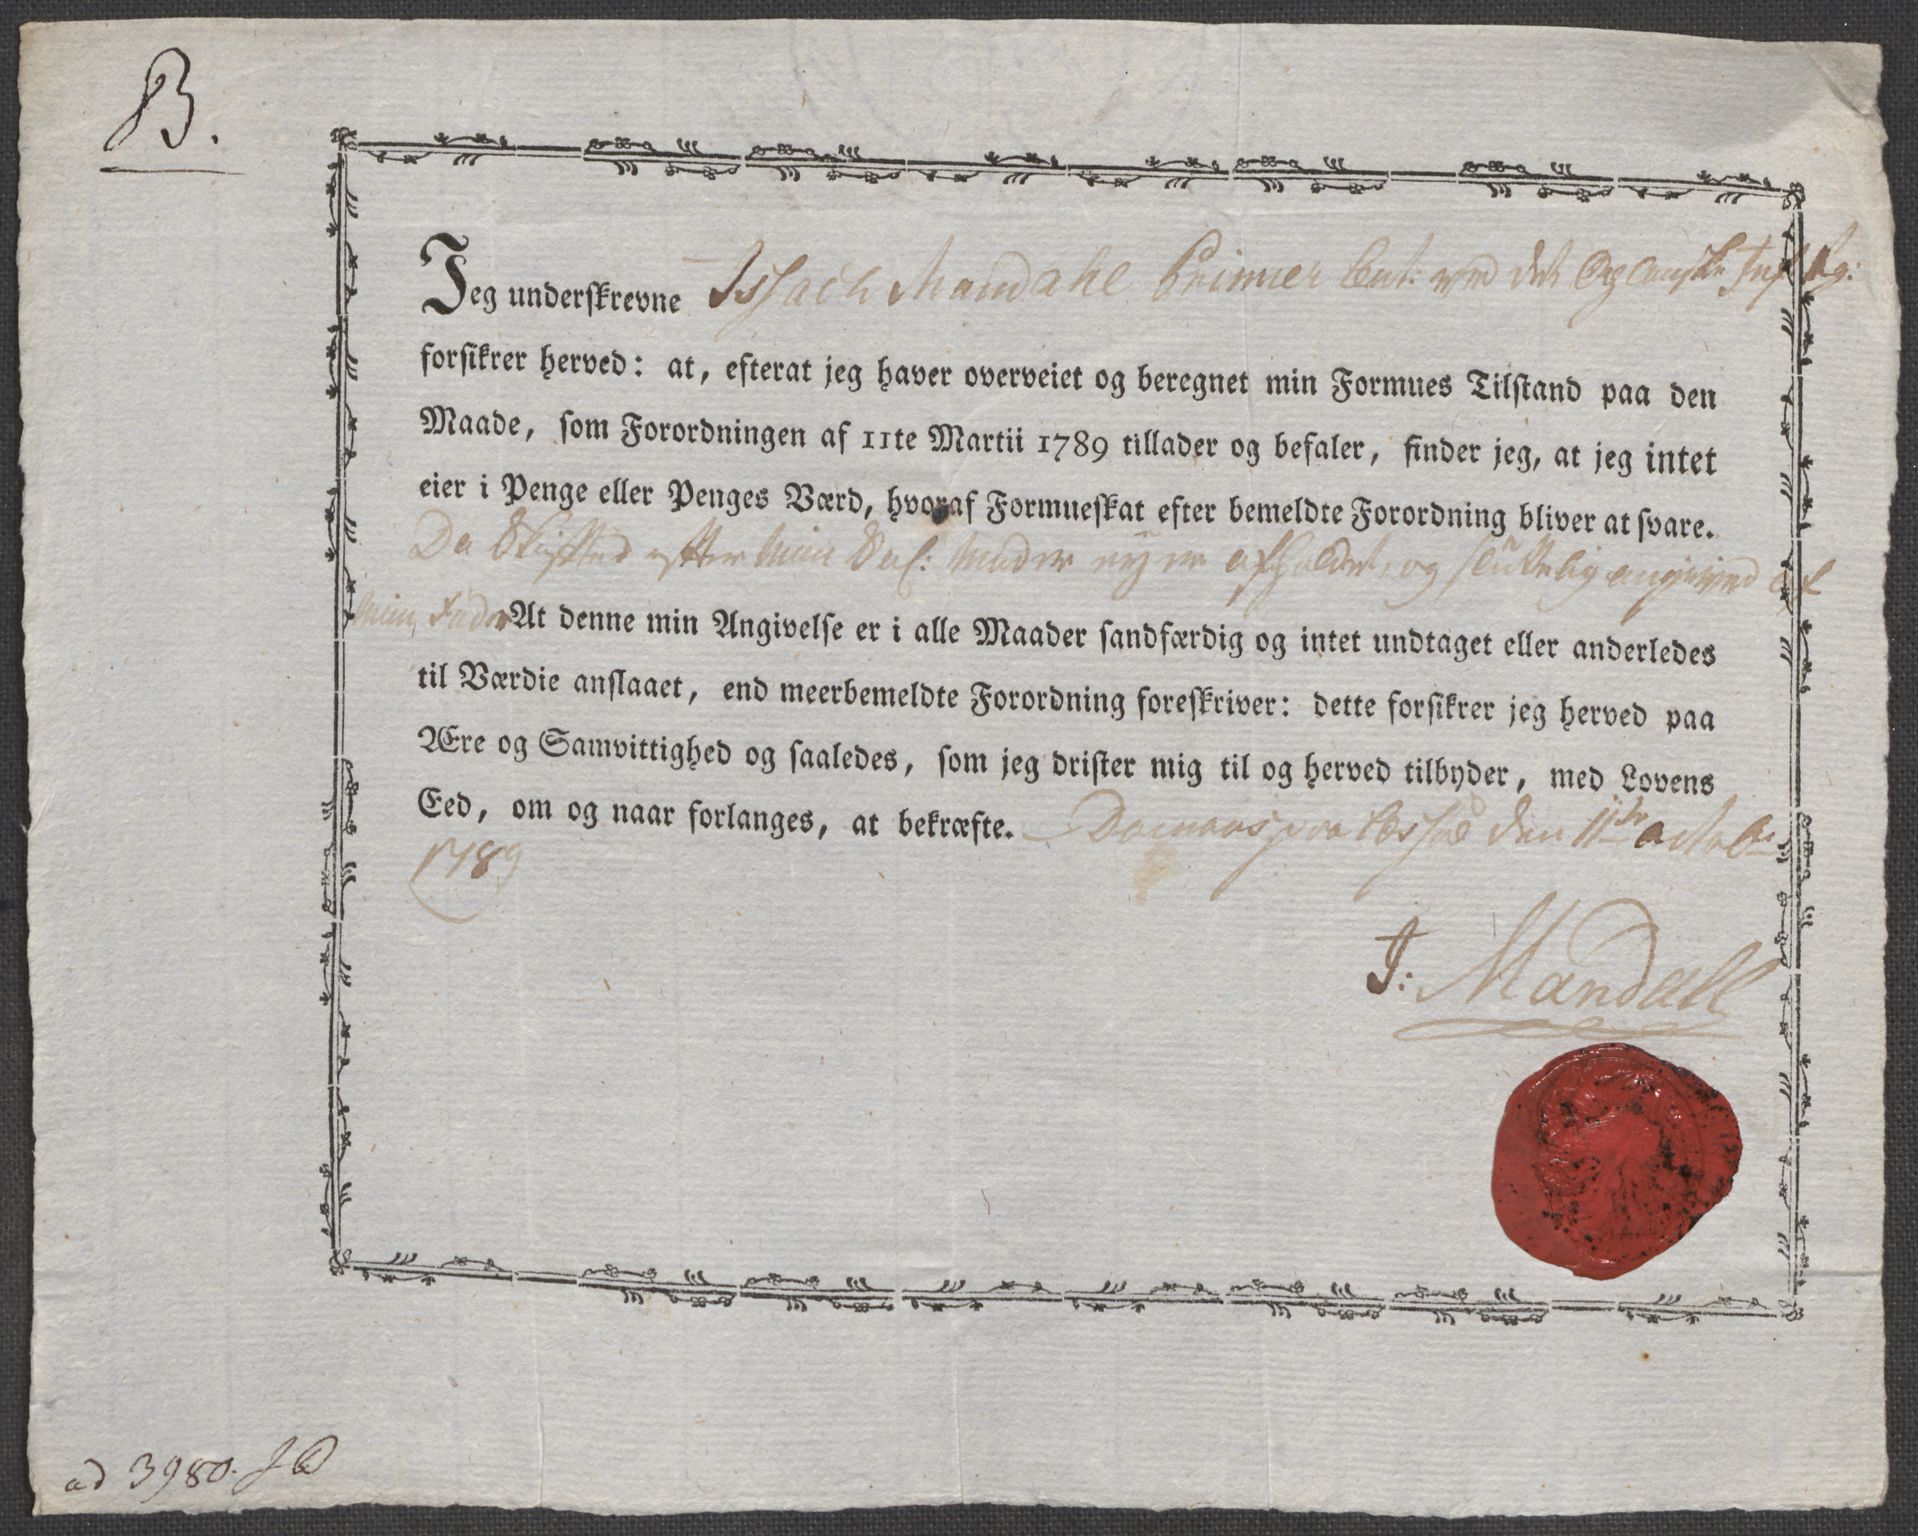 B.
Jeg underskrevne Issach Mandahl Premier Leut: ved det Oplandske Inft Rg:
forsikrer herved: at, efterat jeg haver overveiet og beregnet min Formues Tilstand paa den
Maade, som Forordningen af 11te Martii 1789 tillader og befaler, finder jeg, at jeg intet
eier i Penge eller Penges Værd, hvoraf Formueskat efter bemeldte Forordning bliver at svare.
Da Skiftted efter Min Sal: Moder ey er afholdet, og sluttelig angived af
Min Fader At denne min Angivelse er i alle Maader sandfærdig og intet undtaget eller anderledes
til Værdie anslaaet, end meerbemeldte Forordning foreskriver: dette forsikrer jeg herved paa
Ære og Samvittighed og saaledes, som jeg drister mig til og herved tilbyder, med Lovens
Eed, om og naar forlanges, at bekræfte. den 11te octobr
1789
J: Mandall
ad 3980.